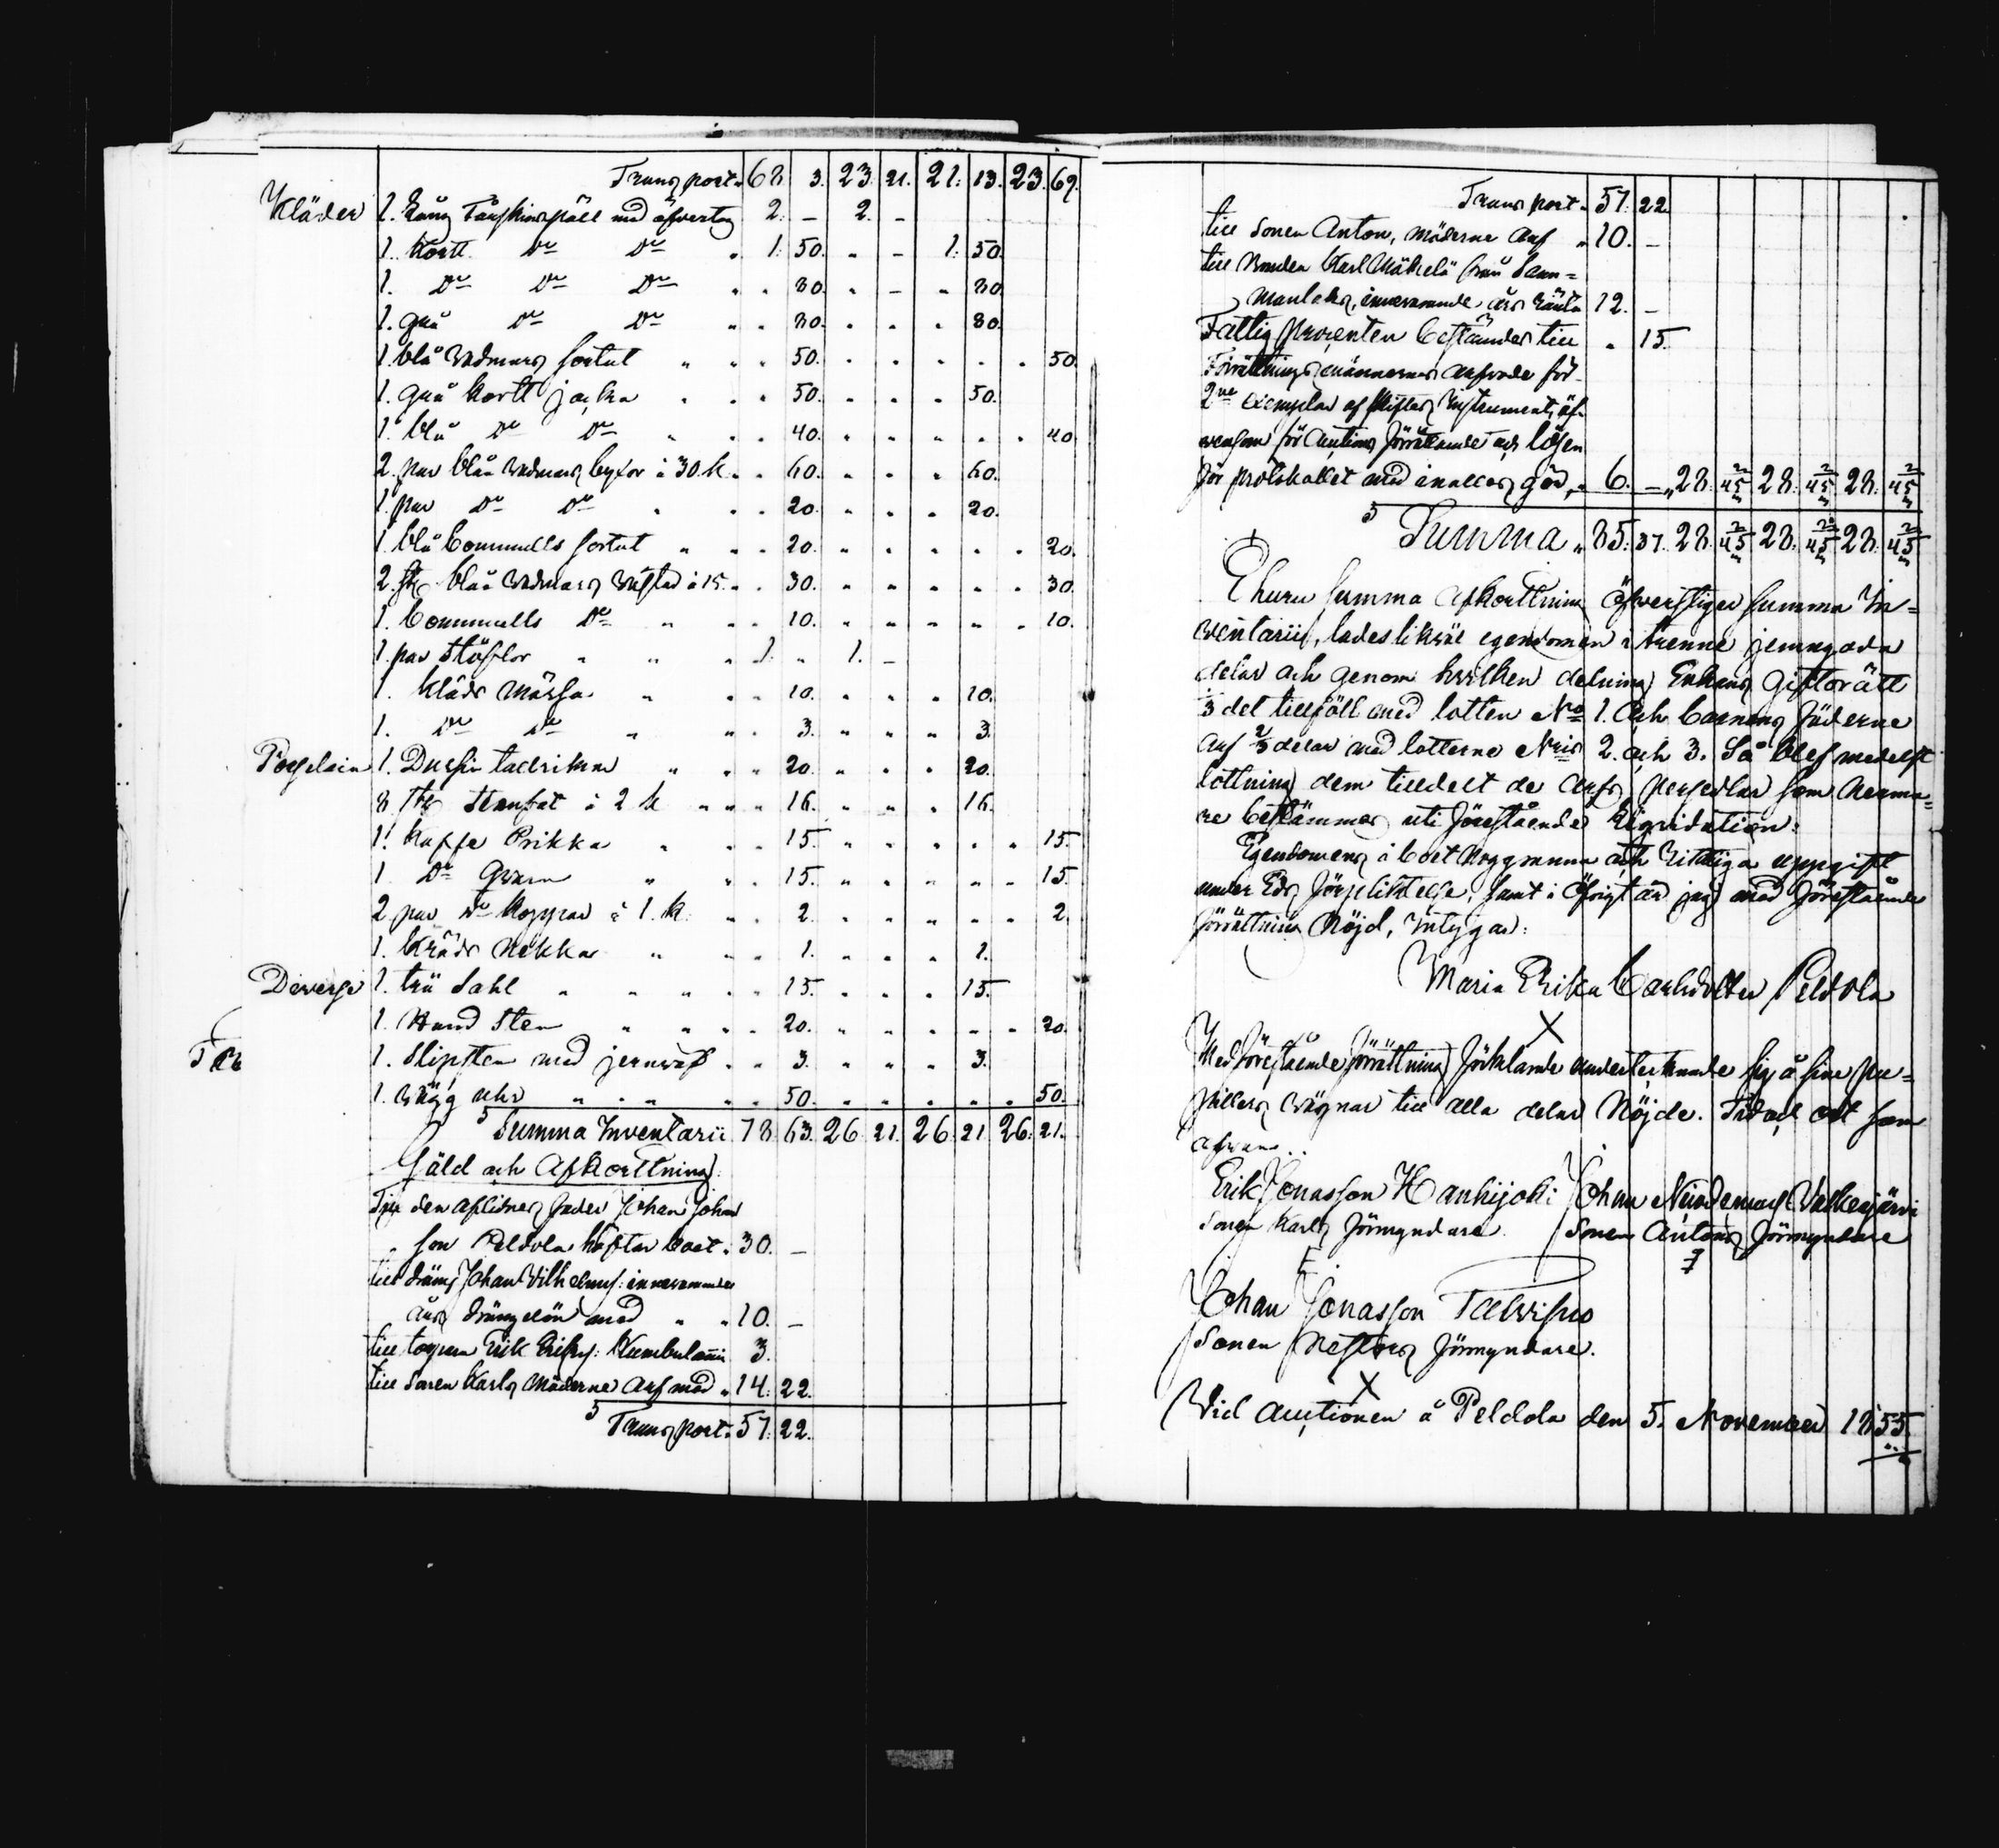 Transport " 68 3. 23. 21. 21: 13. 23. 69.
Kläder 1. Lång Fårskinspäls med öfvertyg 2. – 2. –
1. kort Do Do " 1: 50. " – 1: 50.
1. Do Do Do " " 80. " – " 80.
1. grå Do Do " " 80. " " " 80.
1. blå Wadmars sortut " " " 50. " " " " " 50.
1. grå kort jacka " " " 50. " " " 50.
1. blå Do Do " " " 40. " " " " " 40.
2. par blåa Wadmars byxor à 30. k. " " 60. " " " 60.
1. par Do Do " " " 20. " " " 20.
1. blå Bomulls sortut " " " 20. " " " " " 20.
2. st. blåa Wadmars Wästar à 15. " " 30. " " " " " 30.
1. Bomulls Do " " " 10. " " " " " 10.
1. par Stöflor " " " 1. " 1. –
1. kläds Mössa " " " 10. " " " 10.
1. Do Do " " " 3. " " " 3.
Porslain 1. Dussin talrikar " " " 20. " " " 20.
8 st. Stenfat à 2 k " " " 16. " " " 16.
1. Kaffe Prikka " " " 15. " " " " " 15.
1 Do Qvarn " " " 15. " " " " " 15.
2 par Do koppar à 1. k. " " 2. " " " " " 2.
1. kräds Nekka " " " 1. " " " 1.
Diverse 1. trä Sahl " " " " 15. " " " 15.
1. Hand Sten " " " " 20. " " " " " 20.
1. Slipsten med jernwef " " 3. " " " 3.
1. Wägg uhr " " " " 50. " " " " " 50.
Summa Inventarii 78. 63. 26. 21. 26. 21. 26. 21.
Gäld och Afkortning:
Till den aflidnes fader Johan Johans
son Peldola häftar boet " 30. –
till dräng Johan Wilhelmss: innevarande
års drängelön med " " 10. –
till torparn Erik Eriks: 3.
till Sonen Karls Möderne Arf med " 14. 22.
Transport " 57. 22.
Transport " 57. 22.
till Sonen Anton, Möderne Arf " 10. –
till Bonden Karl Mäkelä från Sann=
Manlaks, innevarande års ränta 12. –
Fattig procenten bestämdes till " 15.
Förrättningsmännernas arfvode för
2ne exemplar af skiftes Instrumentet, äf=
vensom för Auctions förrättande och lösen
för protokollet med inalles gör " 6. – " 28. 45 2/3 28. 45 2/3 28. 45 2/3
Summa " 85. 37. 28. 45 2/3 28. 45 2/3 28. 45 2/3
Ehuru summa Afkortning öfverstiger summa In=
ventarii, lades likväl egendomen i trenne jemngoda
delar och genom hvilken delning Enkans Giftorätt
1/3 del tillföll med lotten No 1. Och barnens fäderne
arf 2/3 delar med lotterne Nris 2. och 3. Så blef medelst
lottning dem tilldelt de Arfs persedlar som Nerma=
re bestämmas uti förestående Liqvidation:
Egendomens å boet Noggranna och Riktiga uppgift
under Eds förpliktelse, samt i öfrigt är jag med förestående
förrättning Nöjd, Intygar:
Maria Erika Carlsdotter Peldola
X
Med förestående förrättning förklarade undertecknade sig å sine pu=
pillers wägnar till alla delar Nöjde. Tid och ort som
ofvan..
Erik Jonasson Hankijoki Johan Valkejärvi
Sonen Karls förmyndare. Sonen Antons förmyndare
Johan Jonasson Talvisuo
Sonen Nestors förmyndare.
X
Vid auctionen å Peldola den 5. November 1855.